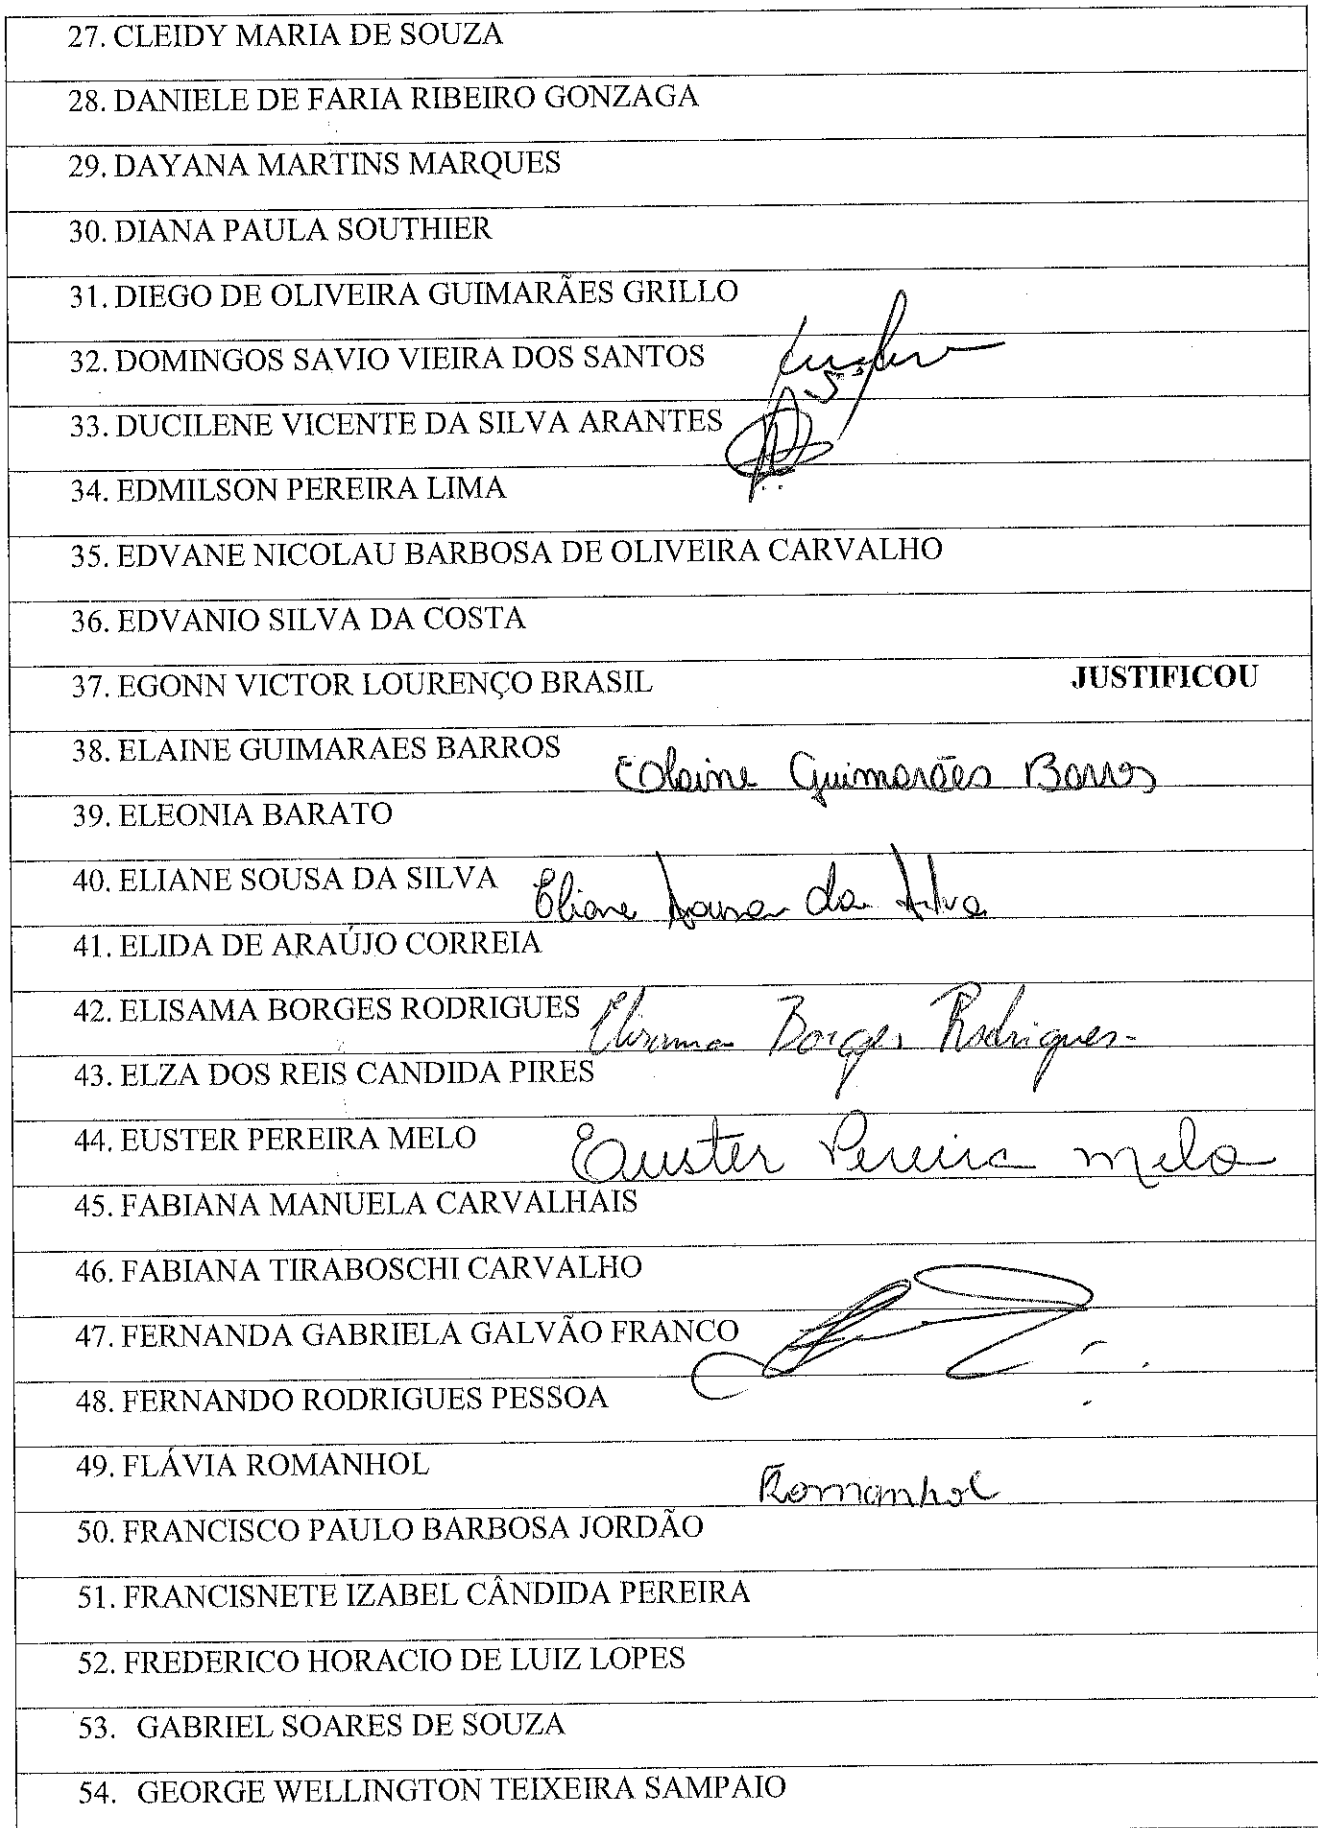 27. CLEIDY MARIA DE SOUZA
28. DANIELE DE FARIA RIBEIRO GONZAGA
29. DAYANA MARTINS MARQUES
30. DIANA PAULA SOUTHIER
31. DIEGO DE OLIVEIRA GUIMARÃES GRILLO
32. DOMINGOS SAVIO VIEIRA DOS SANTOS
33. DUCILENE VICENTE DA SILVA ARANTES
34. EDMILSON PEREIRA LIMA
35. EDVANE NICOLAU BARBOSA DE OLIVEIRA CARVALHO
36. EDVANIO SILVA DA COSTA
37. EGONN VICTOR LOURENÇO BRASIL JUSTIFICOU
38. ELAINE GUIMARAES BARROS Elaine Guimarães Barros
39. ELEONIA BARATO
40. ELIANE SOUSA DA SILVA Eliane Sousa da Silva
41. ELIDA DE ARAÚJO CORREIA
42. ELISAMA BORGES RODRIGUES Elisama Borges Rodrigues
43. ELZA DOS REIS CANDIDA PIRES
44. EUSTER PEREIRA MELO Euster Pereira Melo
45. FABIANA MANUELA CARVALHAIS
46. FABIANA TIRABOSCHI CARVALHO
47. FERNANDA GABRIELA GALVÃO FRANCO
48. FERNANDO RODRIGUES PESSOA
49. FLÁVIA ROMANHOL Romanhol
50. FRANCISCO PAULO BARBOSA JORDÃO
51. FRANCISNETE IZABEL CÂNDIDA PEREIRA
52. FREDERICO HORACIO DE LUIZ LOPES
53. GABRIEL SOARES DE SOUZA
54. GEORGE WELLINGTON TEIXEIRA SAMPAIO